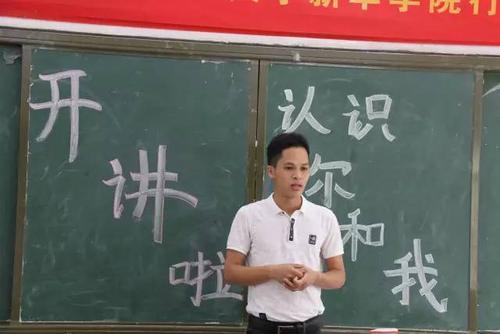 新华学院行
开讲
啦
认识
你
和我